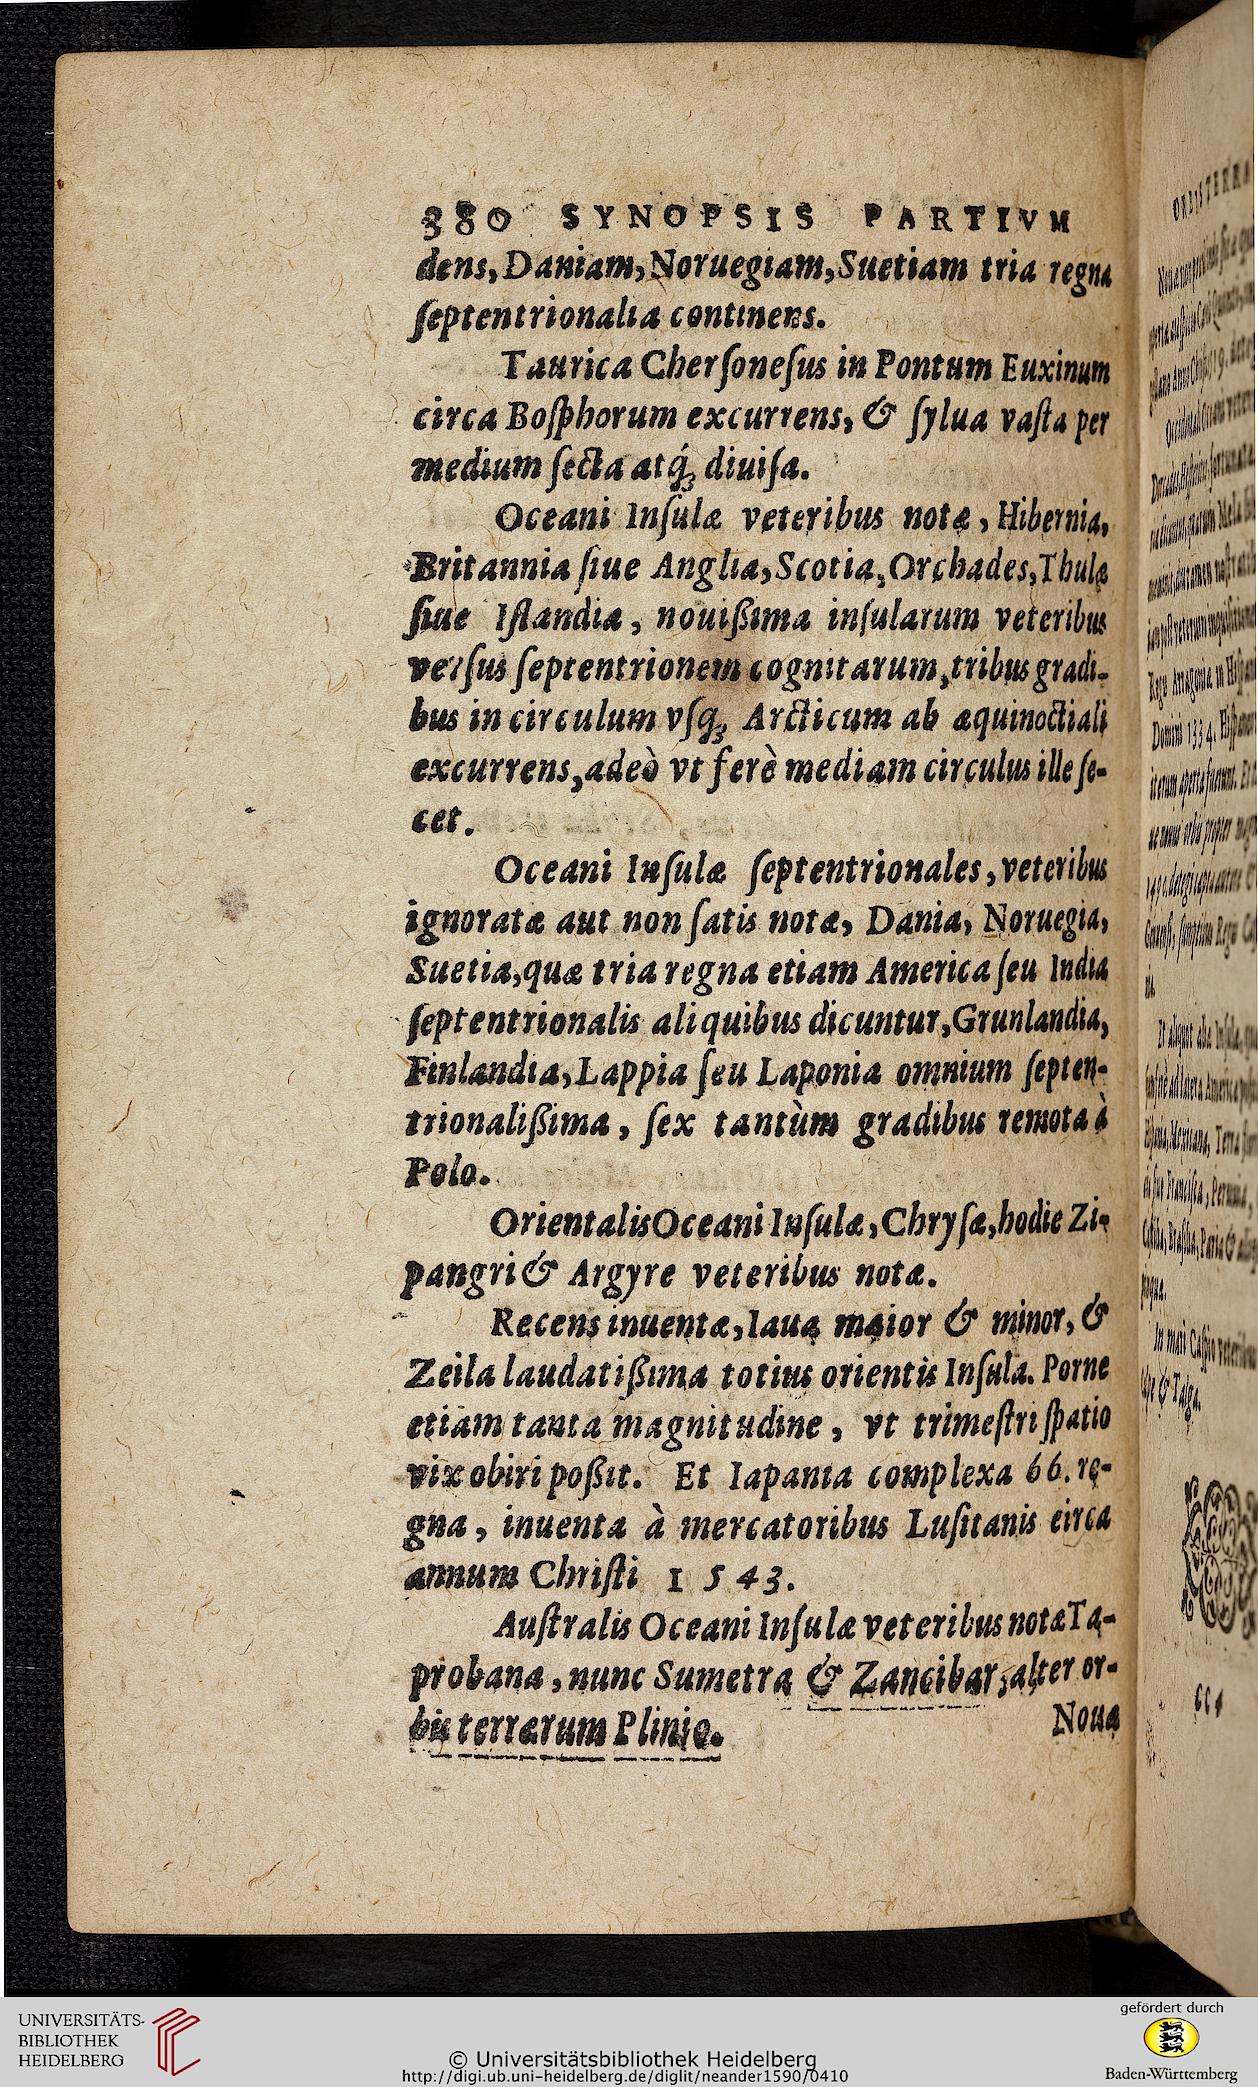 380 SYNOPSIS PARTIVM
dens, Daniam, Noruegiam, Suetiam tria regna
ſeptentrionalia continens.
Taurica Cherſoneſus in Pontum Euxinum
circa Boſphorum excurrens, & ſylua vaſta per
medium ſecta atq́ꝫ diuiſa.
Oceani Inſulæ veteribus notæ, Hibernia,
Britannia ſiue Anglia, Scotia, Orchades, Thulæ
ſiue Iſlandia, nouißima inſularum veteribus
verſus ſeptentrionem cognitarum, tribus gradi-
bus in circulum vſqꝫ Arcticum ab æquinoctiali
excurrens, adeò vt ferè mediam circulus ille ſe-
cet.
Oceani Inſulæ ſeptentrionales, veteribus
ignoratæ aut non ſatis notæ, Dania, Noruegia,
Suetia, quæ tria regna etiam America ſeu India
ſeptentrionalis aliquibus dicuntur, Grunlandia,
Finlandia, Lappia ſeu Laponia omnium ſepten-
trionalißima, ſex tantùm gradibus remota à
Polo.
Orientalis Oceani Inſulæ, Chryſæ, hodie Zi-
pangri & Argyre veteribus notæ.
Recens inuentæ, Iaua maior & minor, &
Zeila laudatißima totius orientis Inſula. Porne
etiam tanta magnitudine, vt trimeſtri ſpatio
vix obiri poßit. Et Iapania complexa 66. re-
gna, inuenta à mercatoribus Luſitanis circa
annum Chriſti 1543.
Auſtralis Oceani Inſulæ veteribus notæ Ta-
probana, nunc Sumetra & Zancibar, alter or-
bis terrarum Plinio.
Noua
UNIVERSITÄTS-
BIBLIOTHEK
HEIDELBERG
© Universitätsbibliothek Heidelberg
http://digi.ub.uni-heidelberg.de/diglit/neander1590/0410
gefördert durch
Baden-Württemberg